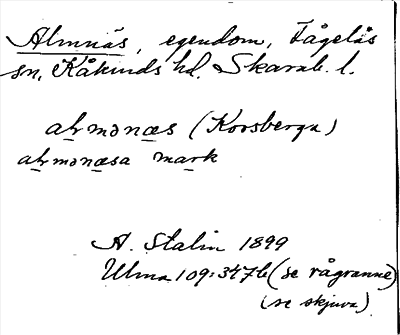 Almnäs, egendom, Fågelås
sn, Kåkinds hd. Skarab. l.
almənæs (Korsberga)
almənæsa mark
A. Stalin 1899
Ulma 109:347b (se rågranne)
(se skjuva)